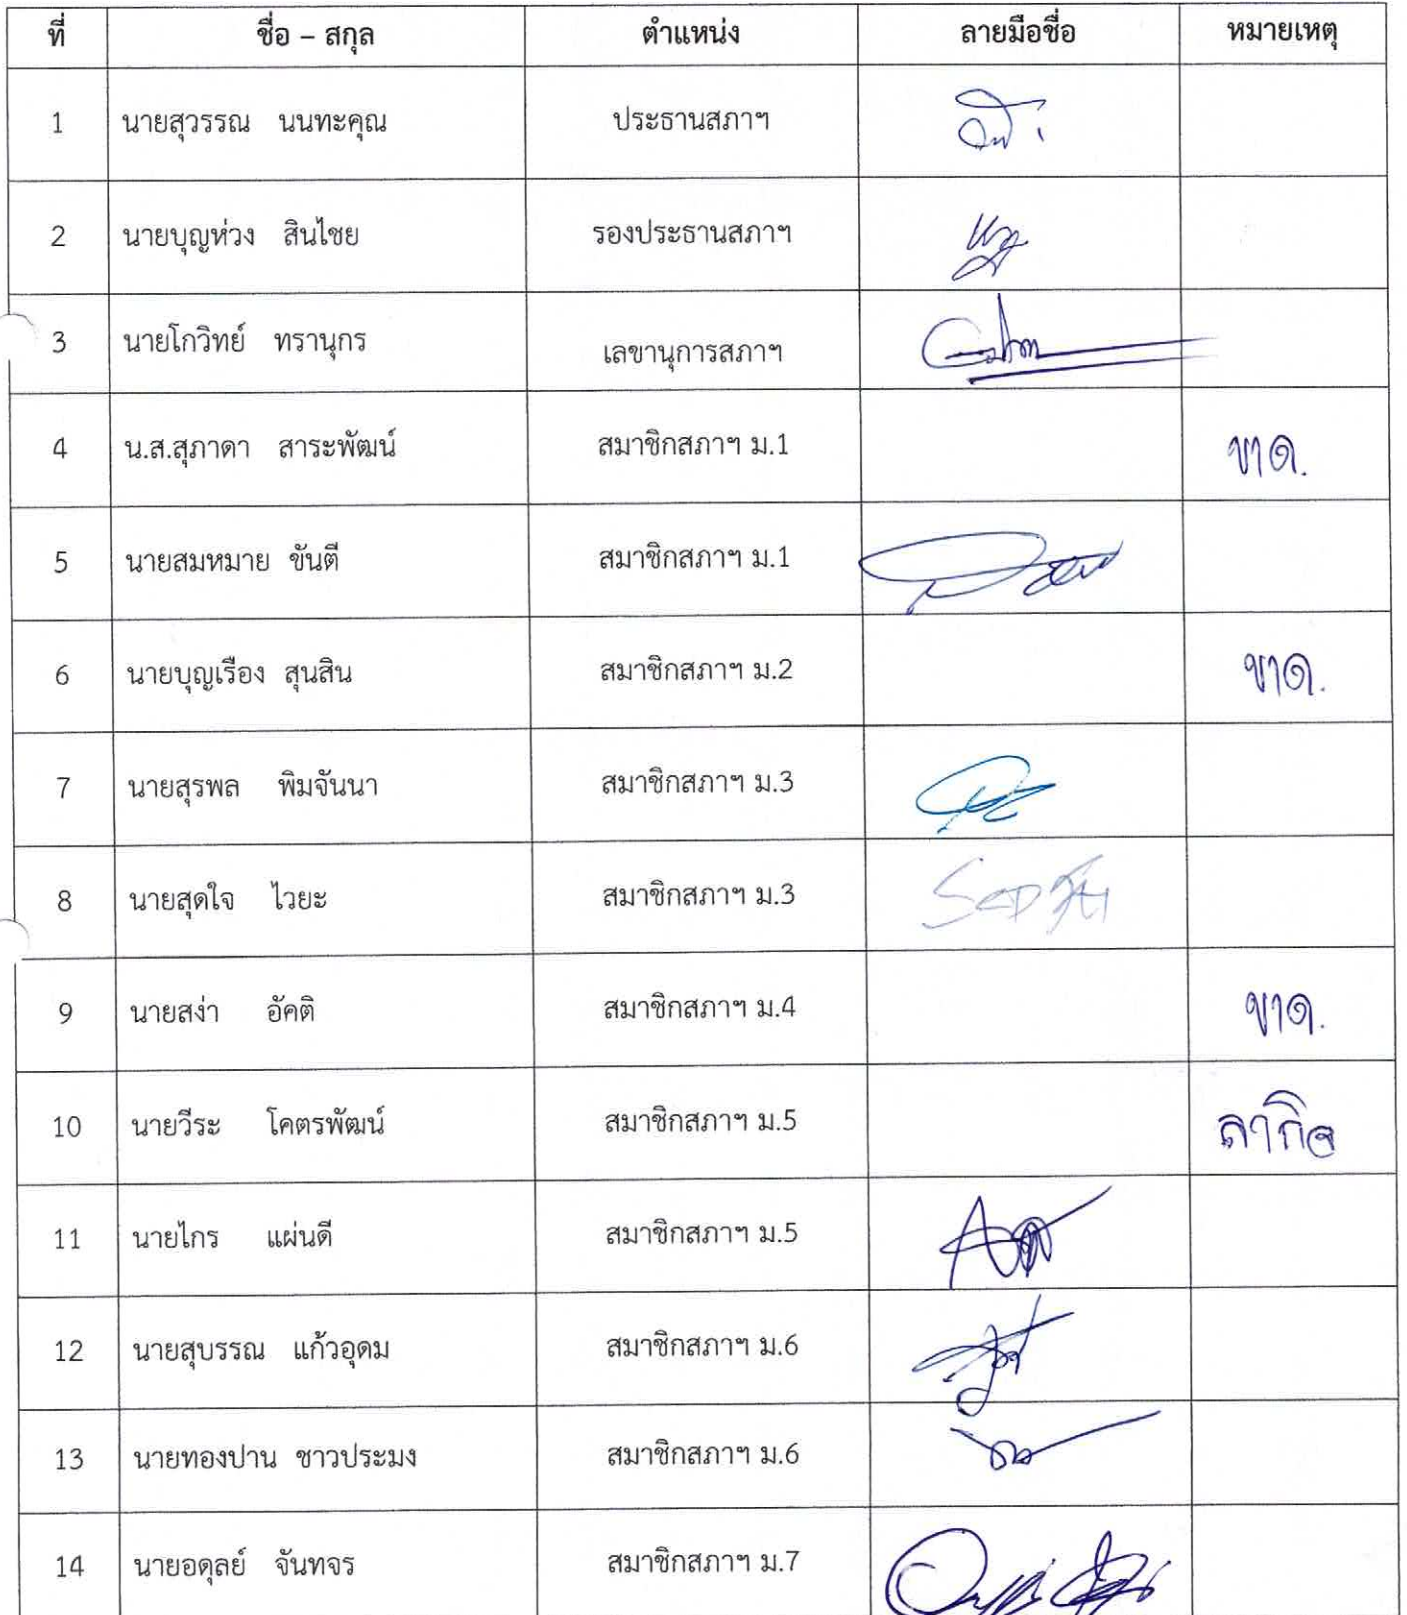 ที่ ชื่อ – สกุล ตำแหน่ง ลายมือชื่อ หมายเหตุ
1 นายสุวรรณ นนทะคุณ ประธานสภาฯ
2 นายบุญห่วง สินไชย รองประธานสภาฯ
3 นายโกวิทย์ ทรานุกร เลขานุการสภาฯ
4 น.ส.สุภาดา สาระพัฒน์ สมาชิกสภาฯ ม.1 ขาด.
5 นายสมหมาย ขันตี สมาชิกสภาฯ ม.1
6 นายบุญเรือง สุนสิน สมาชิกสภาฯ ม.2 ขาด.
7 นายสุรพล พิมจันนา สมาชิกสภาฯ ม.3
8 นายสุดใจ ไวยะ สมาชิกสภาฯ ม.3
9 นายสง่า อัคติ สมาชิกสภาฯ ม.4 ขาด.
10 นายวีระ โคตรพัฒน์ สมาชิกสภาฯ ม.5 ลากิจ
11 นายไกร แผ่นดี สมาชิกสภาฯ ม.5
12 นายสุบรรณ แก้วอุดม สมาชิกสภาฯ ม.6
13 นายทองปาน ชาวประมง สมาชิกสภาฯ ม.6
14 นายอดุลย์ จันทจร สมาชิกสภาฯ ม.7